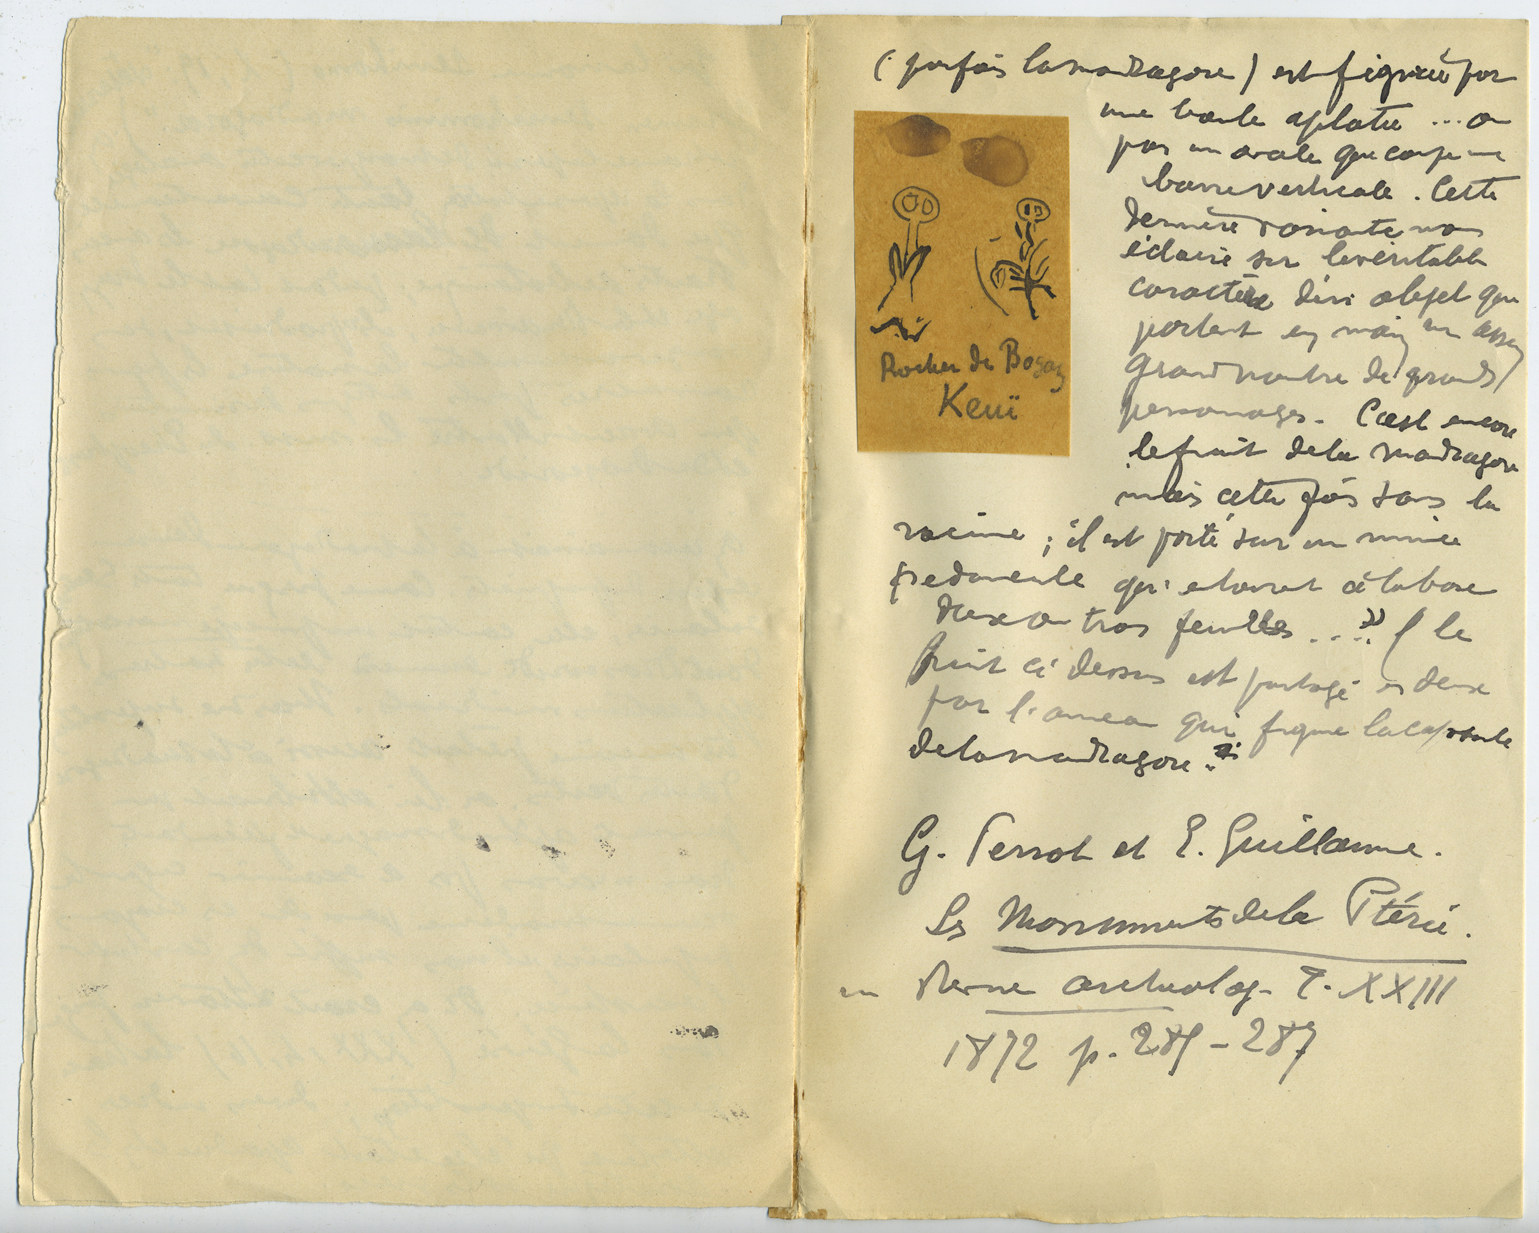 (parfois la mandragore) est figurée par
une boule aplatie ... ou
par un ovale que coupe une
barre verticale. Cette
dernière variante nous
éclaire sur le véritable
caractère d'un objet que
portent en main un assez
grand nombre de grands
personnages. C'est encore
le fruit de la mandragore
mais cette fois sans la
racine ; il est porté sur un mince
pedoncule qui a la base
deux ou trois feuilles ... » (le
fruit ci dessus est partagé en deux
par l'anneau qui figure la capsule
de la mandragore.
Rocher de Bogaz
Keuï
G. Perrot et E. Guillaume.
Les Monuments de la Ptérie.
in Revue archéolog. T. XXIII
1872 p. 285-287